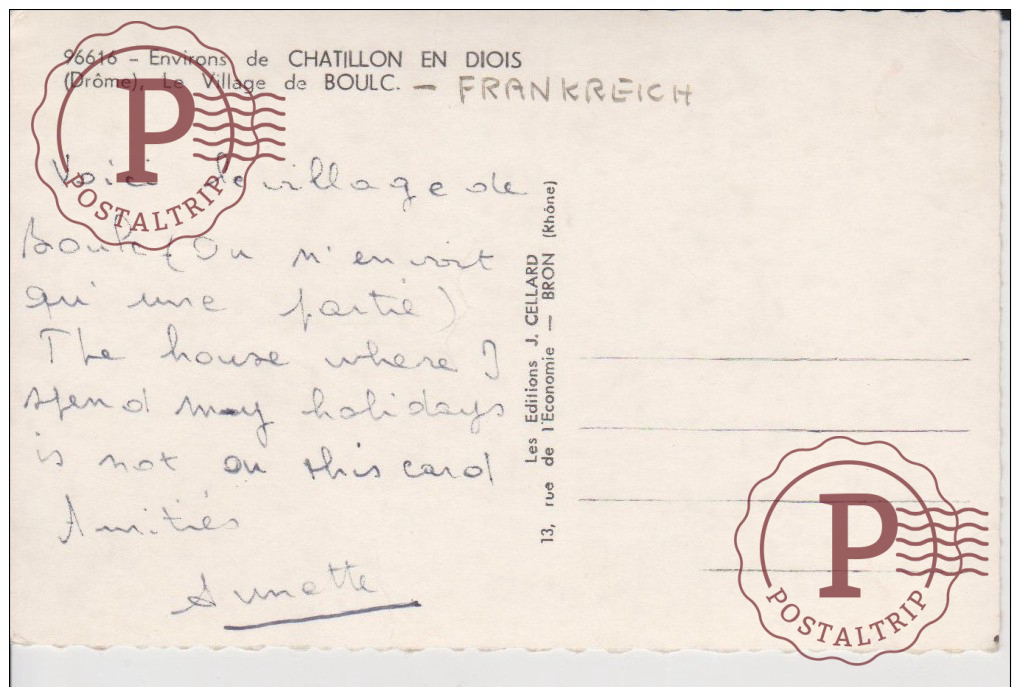 96616 - Environs de CHATILLON EN DIOIS
(Drôme), Le Village de BOULC. - FRANKREICH
Voici le village de
Boulc (On n'en voit
qu'une partie)
The house where I
spend my holidays
is not on this card
Amitiés
Annette
Les Editions J. CELLARD
13, rue de l'Economie — BRON (Rhône)
P
POSTALTRIP
P
POSTALTRIP